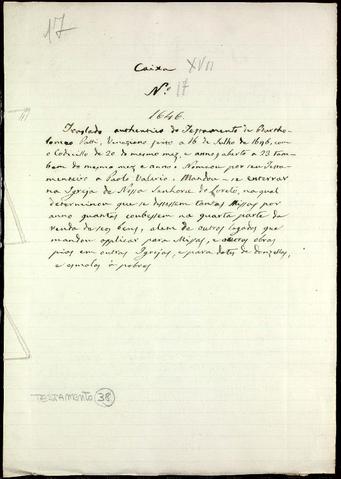 17
Caixa XVII
Nº 17
1646
Traslado authentico do Testamento de Bartho-
lomeo Patti, Veneziano feito a 16 de Julho de 1646, com
o Codicillo de 20 do mesmo mez, e anno, aberto a 23 tam-
bem do mesmo mez e anno. Nomeou por seu Testa-
menteiro a Paolo Valerio. Mandou-se enterrar
na Igreja de Nossa Senhora do Loreto, na qual
determinou que se dissessem tantas Missas por
anno quantas coubessem na quarta parte da
renda de seos bens, alem de outros legados que
mandou applicar para Missas, e outras obras
pias em outras Igrejas, e para dotes de donzellas,
e esmolas á pobres
TESTAMENTO 38